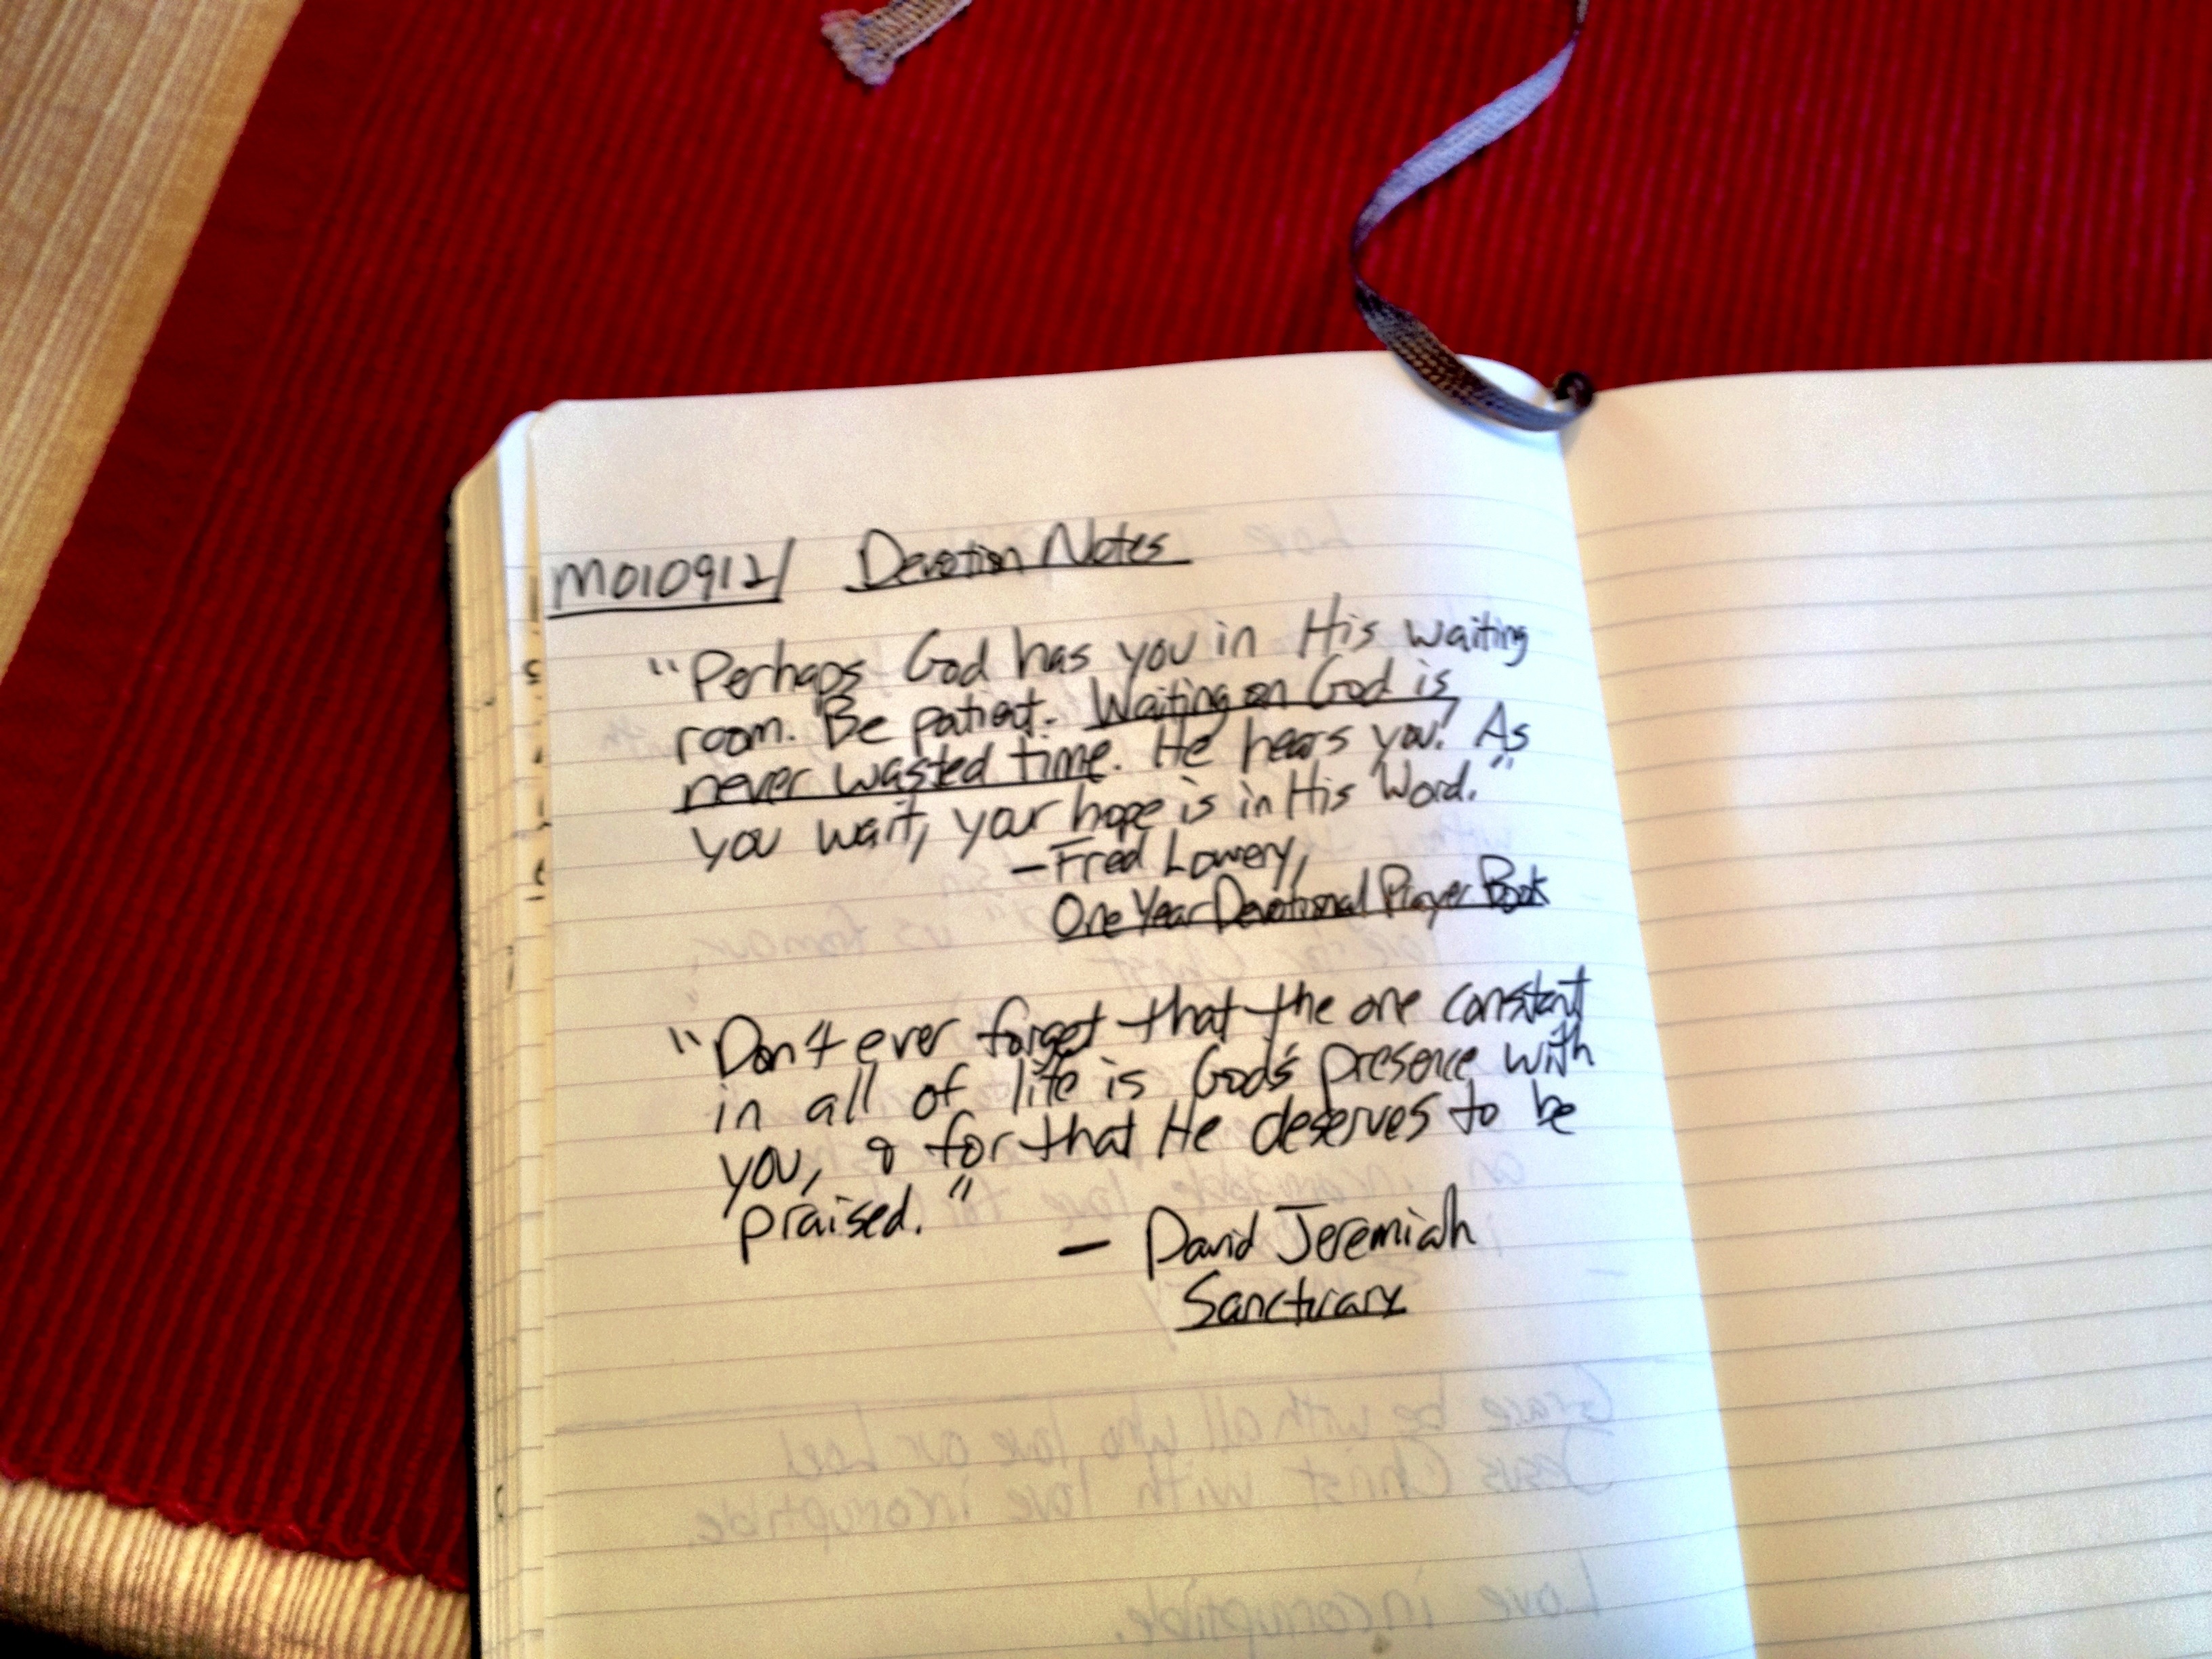 M010912/ Devotion Notes
"Perhaps God has you in His waiting
room. Be patient. Waiting on God is
never wasted time. He hears you! As
you wait, your hope is in His Word."
—Fred Lowery,
One Year Devotional Prayer Book
"Don't ever forget that the one constant
in all of life is God's presence with
you, & for that He deserves to be
praised."
— David Jeremiah
Sanctuary
Grace be with all who love our Lord
Jesus Christ with love incorruptible.
Love incorruptible.